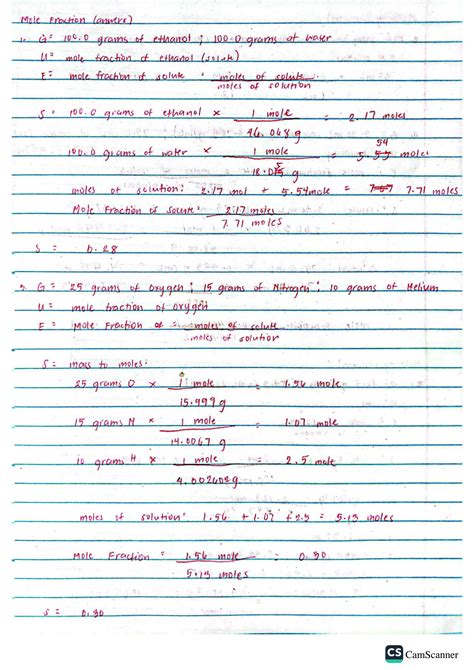 Mole Fraction (answers)
1. G= 100.0 grams of ethanol ; 100.0 grams of water
U= mole fraction of ethanol (solute)
E= mole fraction of solute = moles of solute
moles of solution
S= 100.0 grams of ethanol × 1 mole = 2.17 moles
46.048 g
100.0 grams of water × 1 mole = 5.54 moles
18.05 g
moles of solution: 2.17 mol + 5.54mole = 7.71 moles
Mole Fraction of solute: 2.17 moles
7.71 moles
S = 0.28
G= 25 grams of oxygen ; 15 grams of Nitrogen ; 10 grams of Helium
U= mole fraction of oxygen
E= Mole Fraction = moles of solute
moles of solution
S= mass to moles:
25 grams O × 1 mole = 1.56 mole
15.999 g
15 grams N × 1 mole = 1.07 mole
14.0067 g
10 grams H × 1 mole = 2.5 mole
4.002602 g
moles of solution: 1.56 + 1.07 + 2.5 = 5.13 moles
Mole Fraction = 1.56 mole = 0.30
5.13 moles
S = 0.30
CS CamScanner